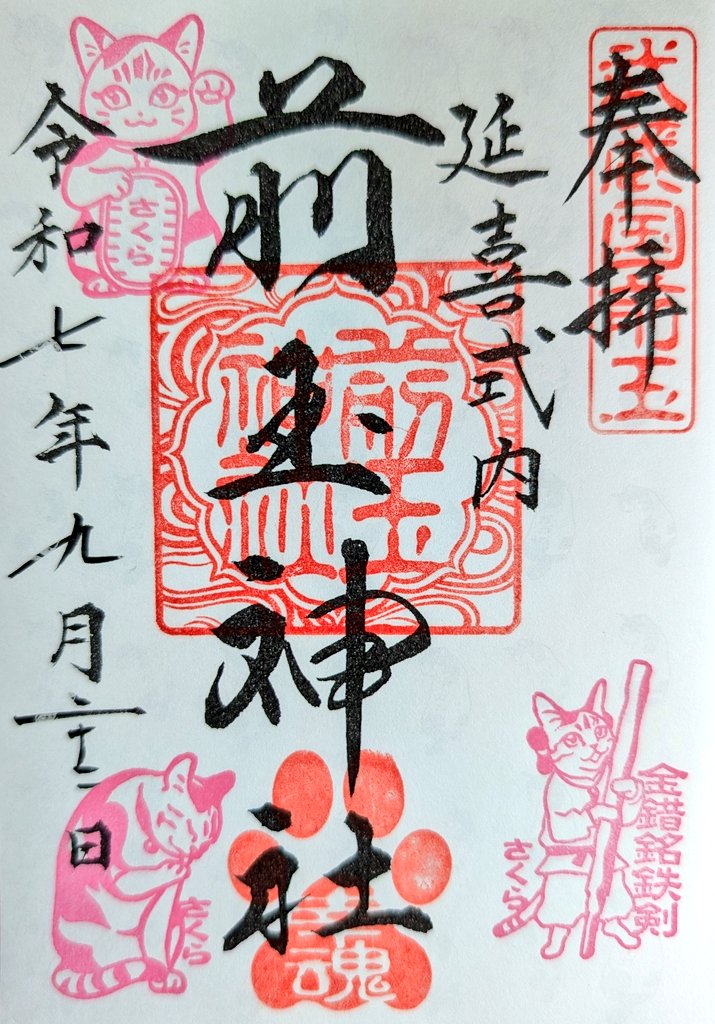 奉拝
武蔵国前玉
延喜式内
前玉神社
前玉
神社
幸魂
令和七年九月二十二日
さくら
さくら
金錯銘鉄剣
さくら